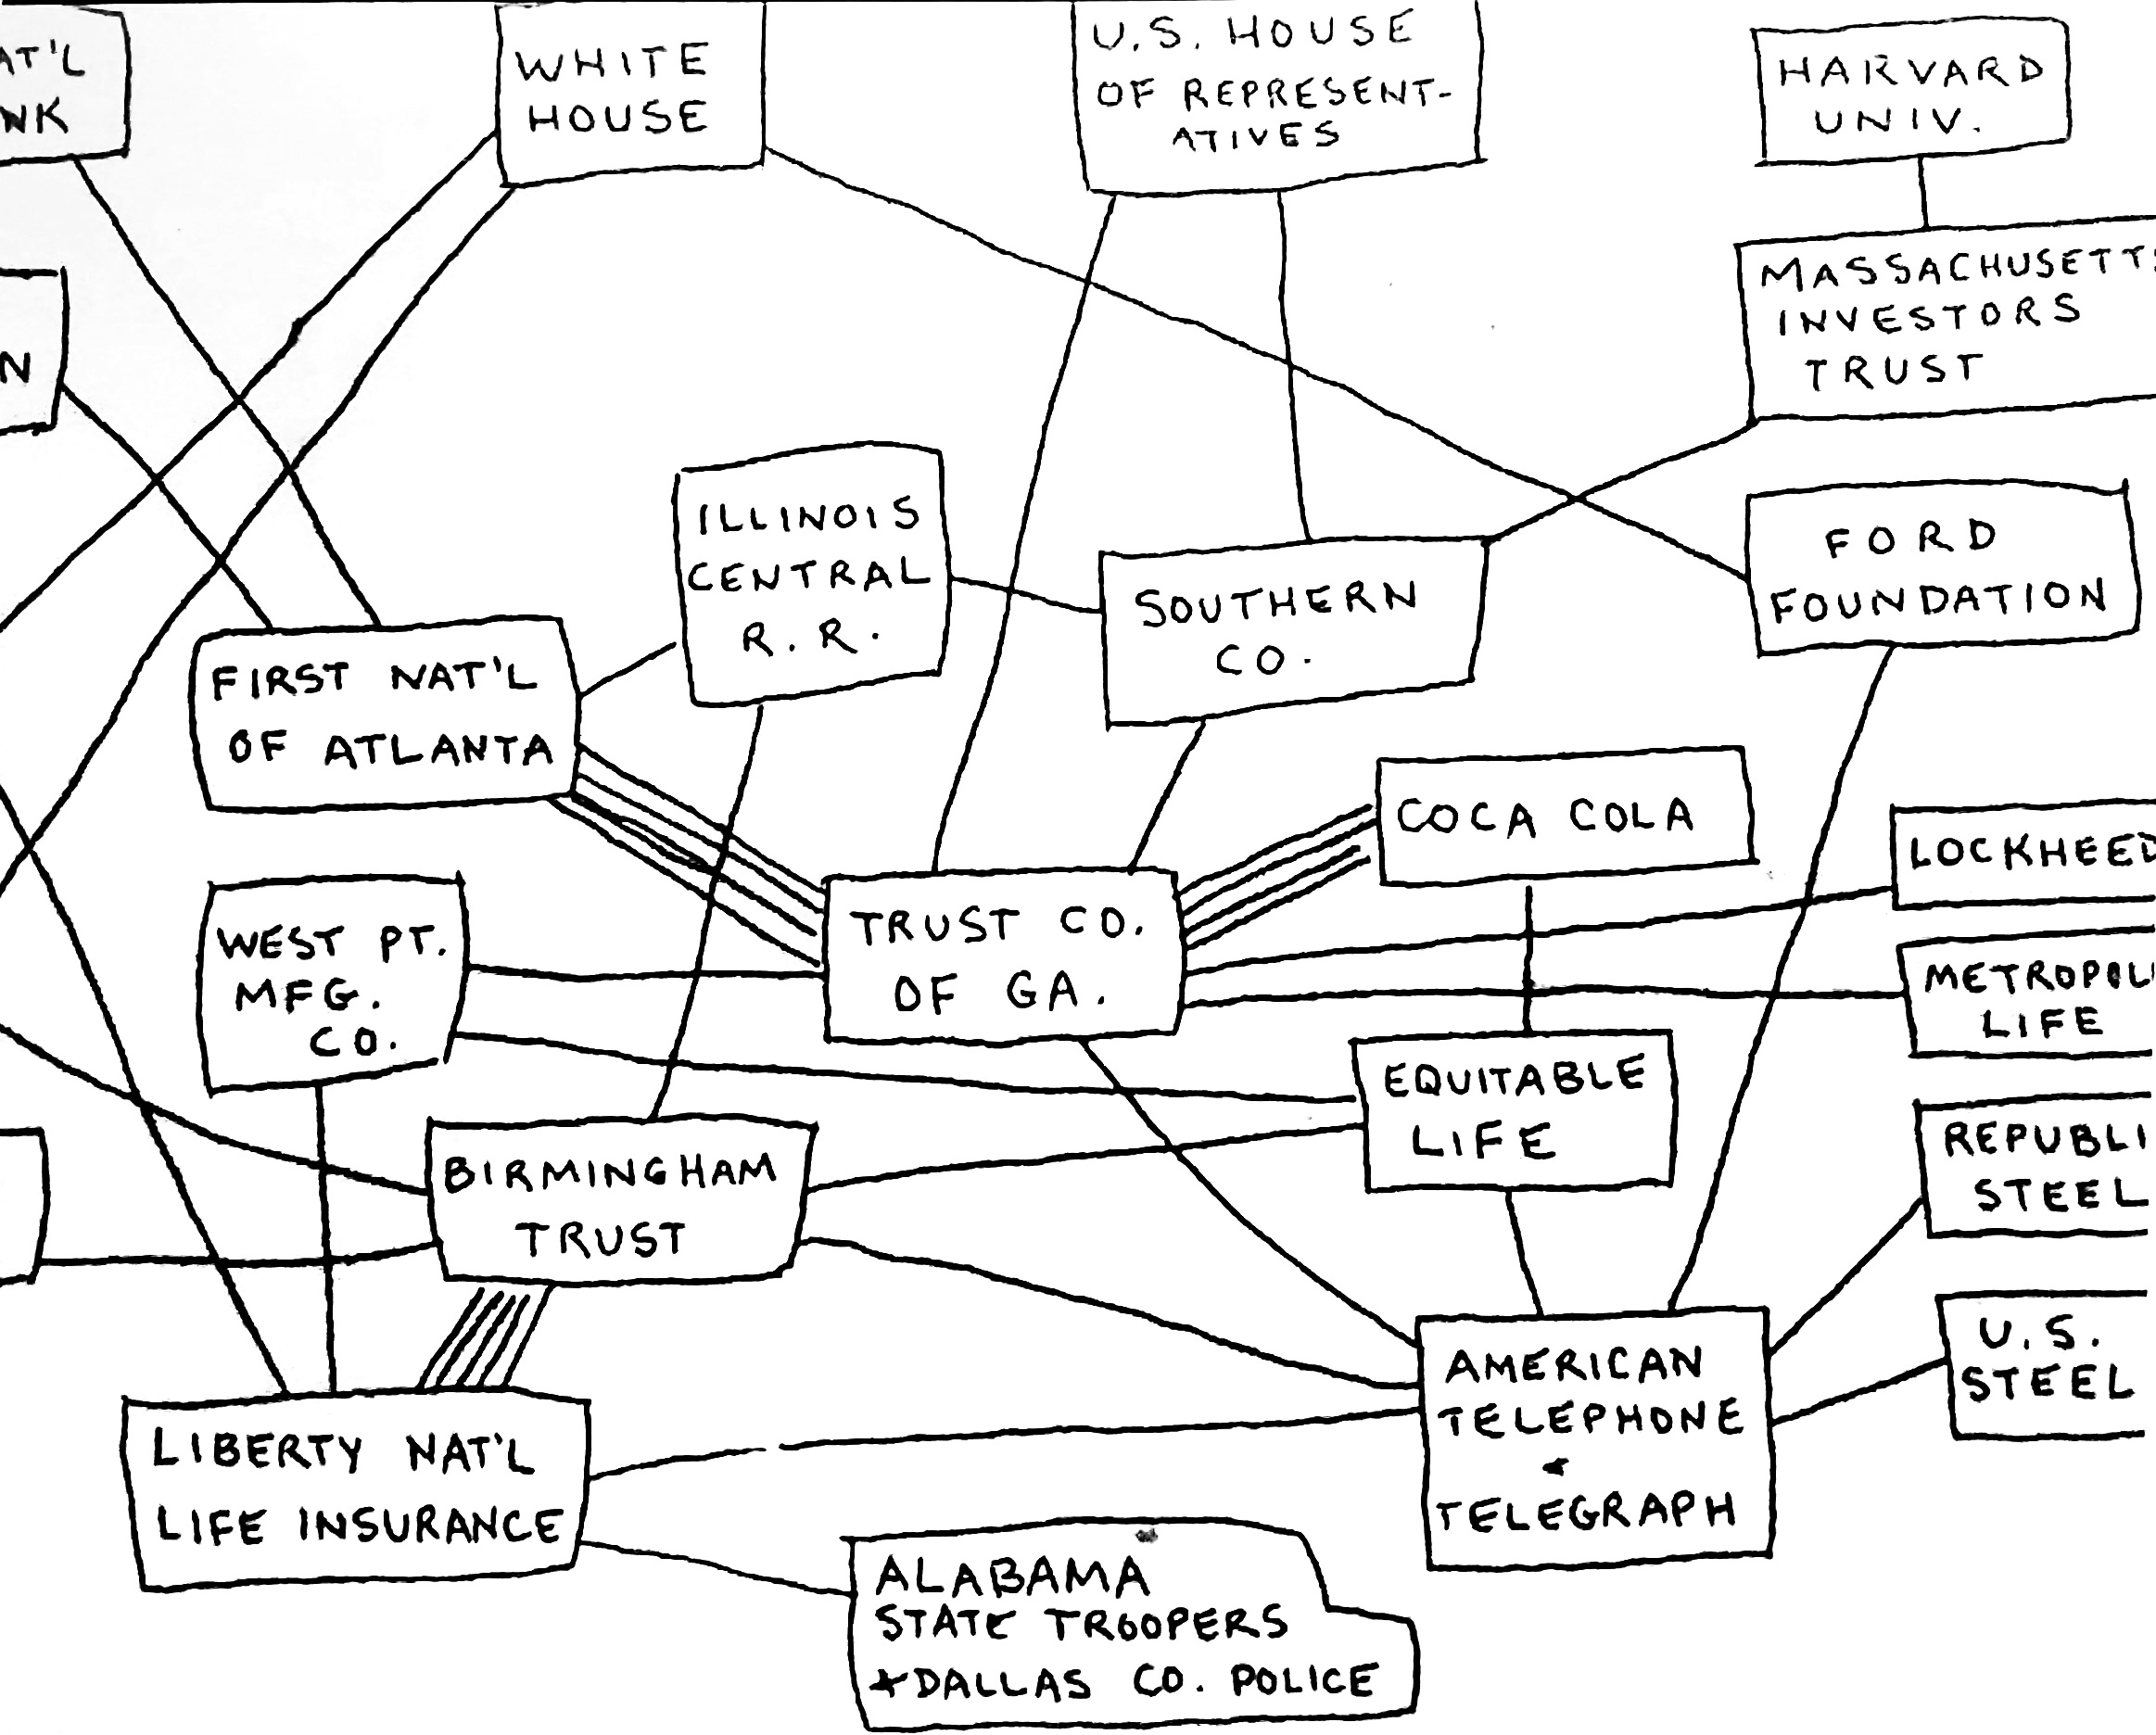 AT'L
NK
WHITE
HOUSE
U.S. HOUSE
OF REPRESENT-
ATIVES
HARVARD
UNIV.
MASSACHUSETTS
INVESTORS
TRUST
N
ILLINOIS
CENTRAL
R.R.
SOUTHERN
CO.
FORD
FOUNDATION
FIRST NAT'L
OF ATLANTA
COCA COLA
LOCKHEED
WEST PT.
MFG.
CO.
TRUST CO.
OF GA.
METROPOLI
LIFE
EQUITABLE
LIFE
BIRMINGHAM
TRUST
REPUBLI
STEEL
U.S.
STEEL
AMERICAN
TELEPHONE
&
TELEGRAPH
LIBERTY NAT'L
LIFE INSURANCE
ALABAMA
STATE TROOPERS
+DALLAS CO. POLICE